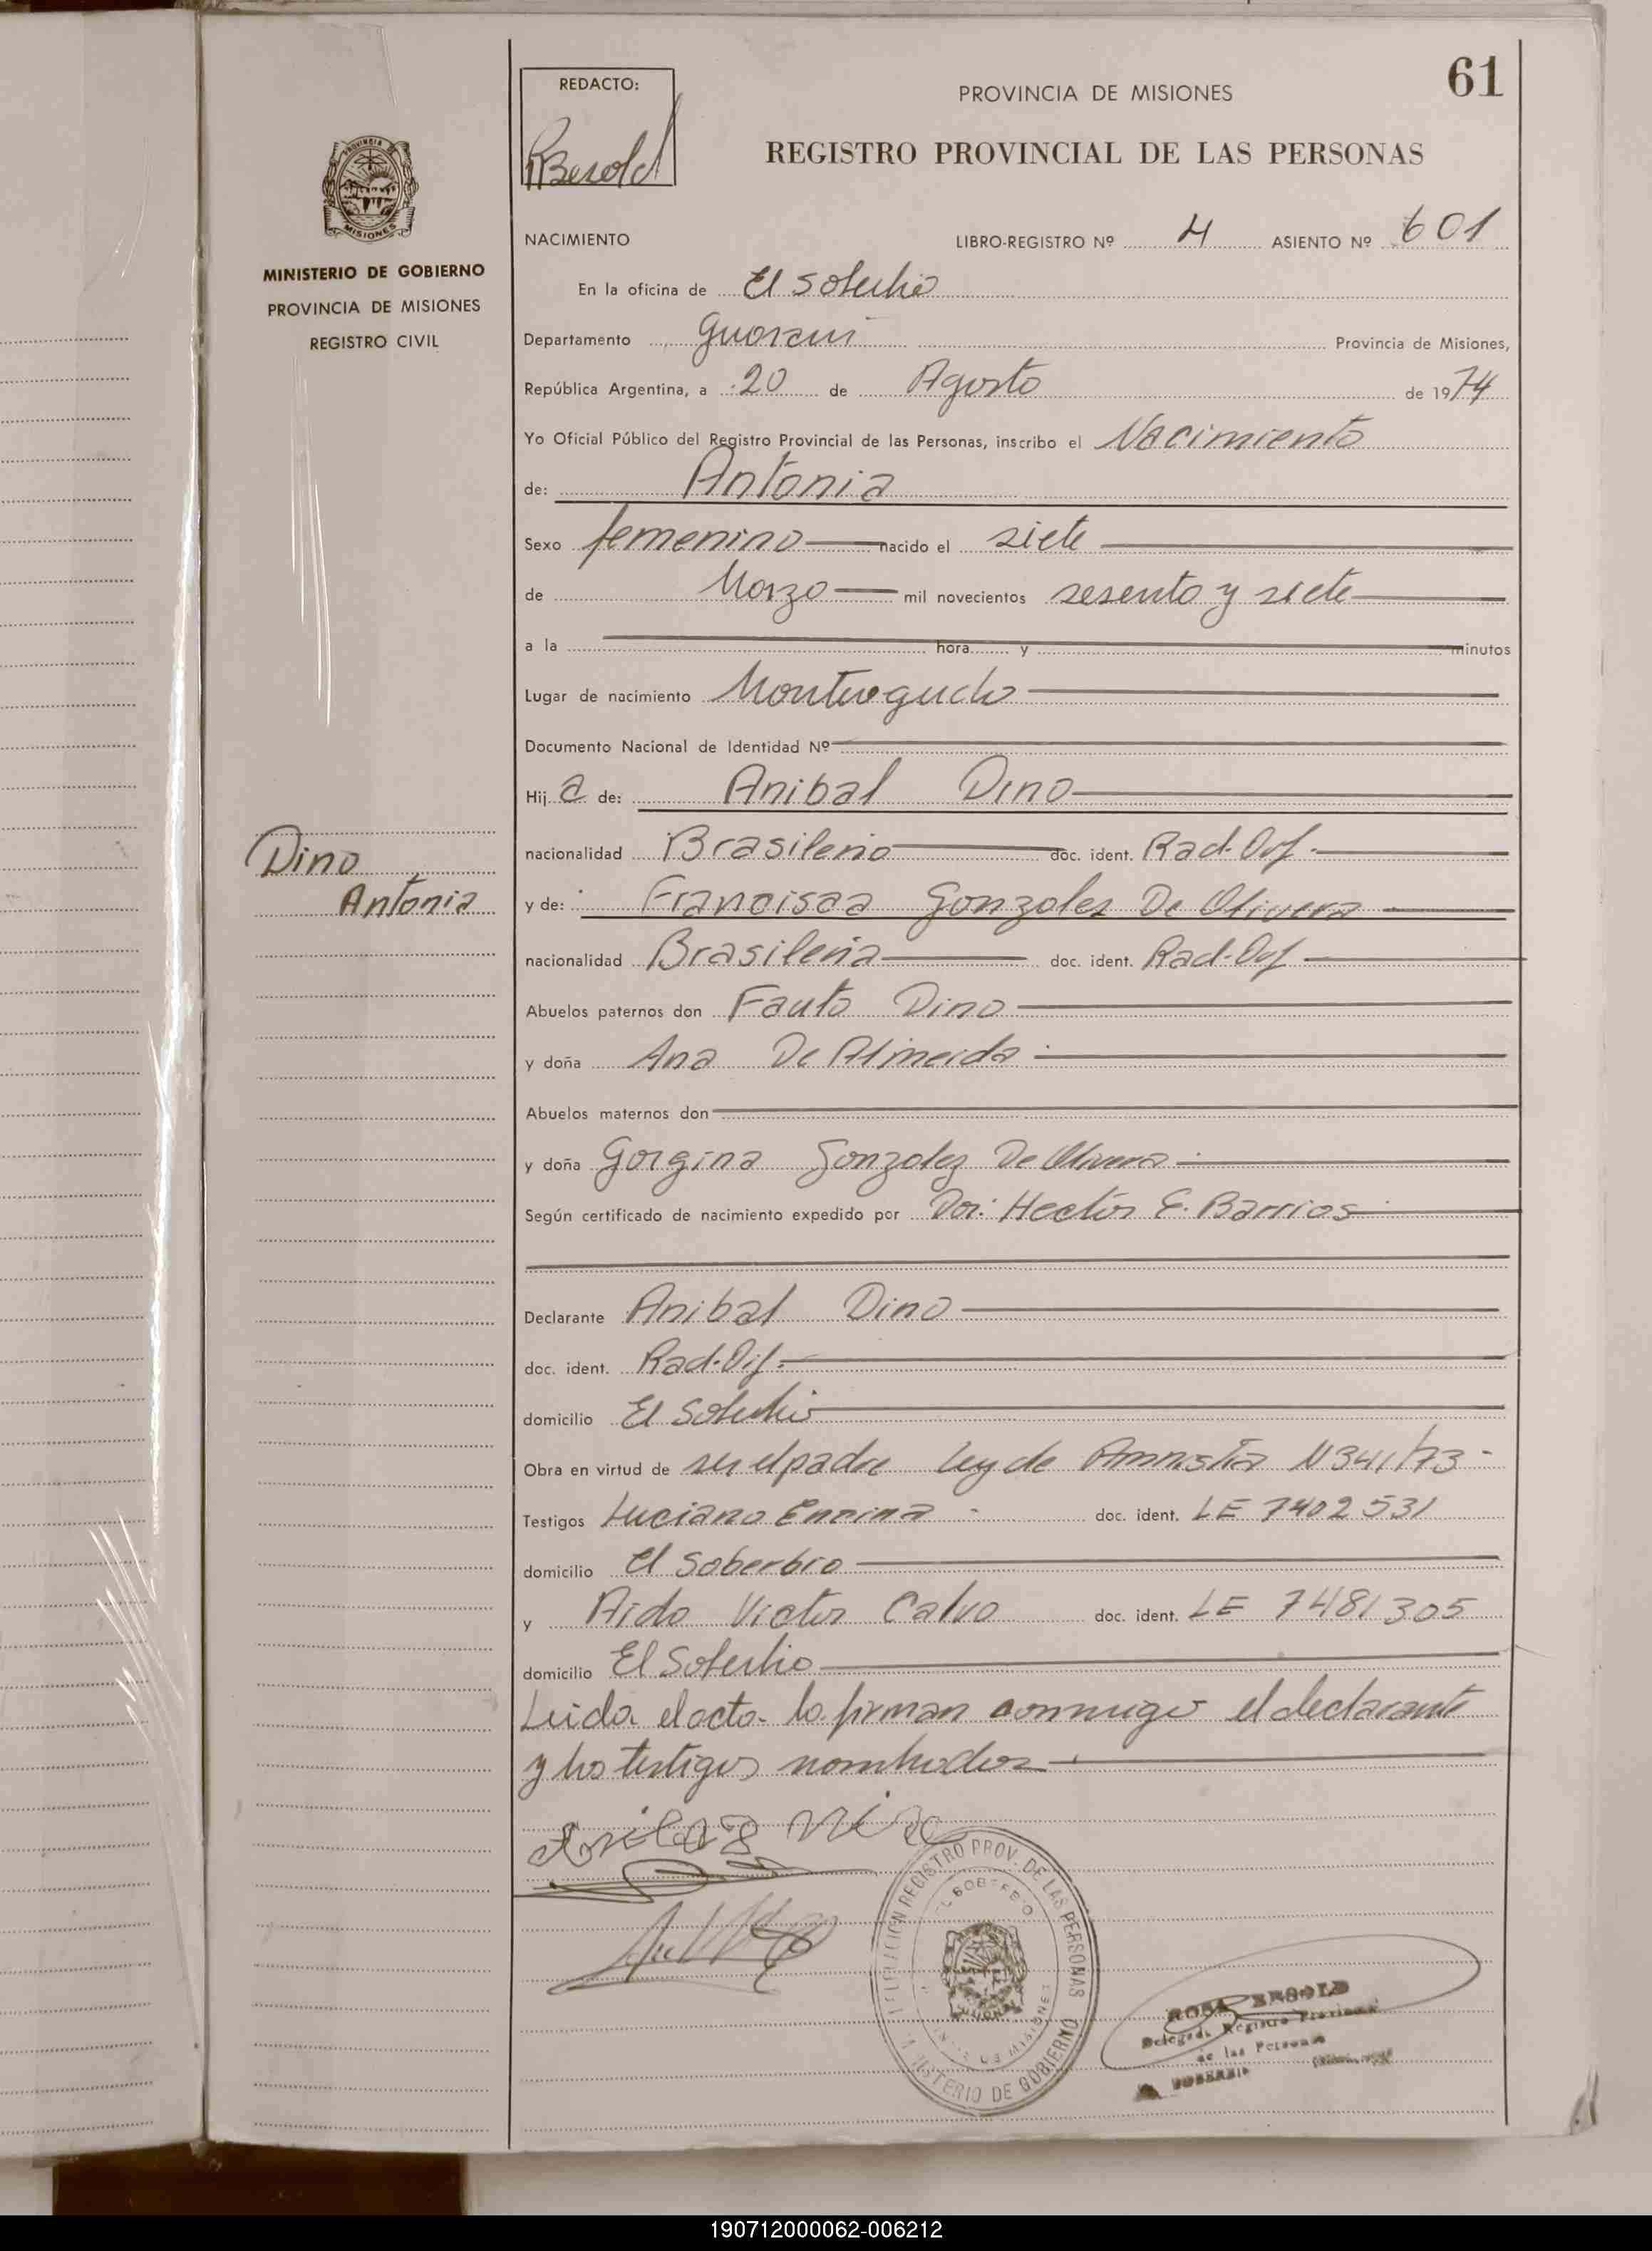 61
REDACTO:
RBesold
PROVINCIA DE MISIONES
REGISTRO PROVINCIAL DE LAS PERSONAS
MISIONES
MINISTERIO DE GOBIERNO
PROVINCIA DE MISIONES
REGISTRO CIVIL
NACIMIENTO LIBRO-REGISTRO Nº 4 ASIENTO Nº 601
En la oficina de El Soberbio
Departamento Guarani Provincia de Misiones,
República Argentina, a 20 de Agosto de 1974
Yo Oficial Público del Registro Provincial de las Personas, inscribo el Nacimiento
de: Antonia
Sexo femenino nacido el siete
de Marzo mil novecientos sesenta y siete
a la hora y minutos
Lugar de nacimiento Monteagudo
Documento Nacional de Identidad Nº
Hij a de: Anibal Dino
Dino
Antonia
nacionalidad Brasileño doc. ident. Rad. Def.
y de: Francisca Gonzalez De Olivera
nacionalidad Brasileña doc. ident. Rad. Def
Abuelos paternos don Fauto Dino
y doña Ana De Almeida
Abuelos maternos don
y doña Gorgina Gonzalez De Olivera
Según certificado de nacimiento expedido por Dor. Hector E. Barrios
Declarante Anibal Dino
doc. ident. Rad. Def.
domicilio El Soberbio
Obra en virtud de ser el padre Ley de Amnistia N 341/73
Testigos Luciano Encina doc. ident. LE 7402531
domicilio El Soberbio
y Aido Victor Calvo doc. ident. LE 7481305
domicilio El Soberbio
Leida el acta lo firman conmigo el declarante
y los testigos nombrados
REGISTRO PROV. DE LAS PERSONAS
EL SOBERBIO
MINISTERIO DE GOBIERNO
ROSA BESOLD
Delegada Registro Provincial
de las Personas
SOBERBIO
190712000062-006212